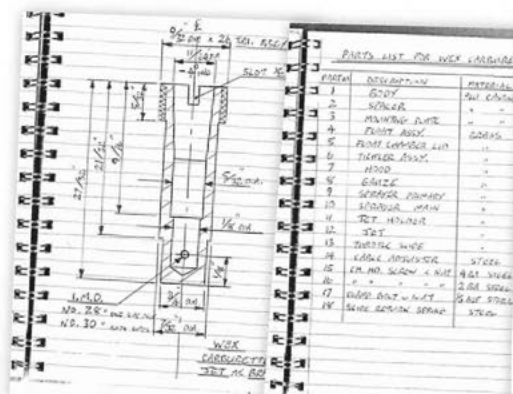 9/32" DIA × 26 T.P.I. BSC
11/64 DIA
SLOT
5/16"
27/32"
21/32"
9/16"
5/32 DIA.
1/8 DIA
1/8"
I.M.O.
NO. 28"
NO. 30"
7/32 DIA
WEX
CARBURETTE
JET AS
PARTS LIST FOR WEX CARBURE
PART No DESCRIPTION MATERIAL
1 BODY CASTING
2 SPACER " "
3 MOUNTING PLATE " "
4 FLOAT ASSY. BRASS
5 FLOAT CHAMBER LID "
6 TICKLER ASSY. "
7 HOOD "
8 GAUZE "
9 SPRAYER PRIMARY "
10 SPRAYER MAIN "
11 JET HOLDER "
12 JET "
13 THROTTLE WIRE "
14 CABLE ADJUSTER STEEL
15 CH. HD. SCREW & NUT 4 BA STEEL
16 " " " " 2 BA STEEL
17 CLAMP BOLT & NUT STEEL
18 SLIDE RETURN SPRING STEEL